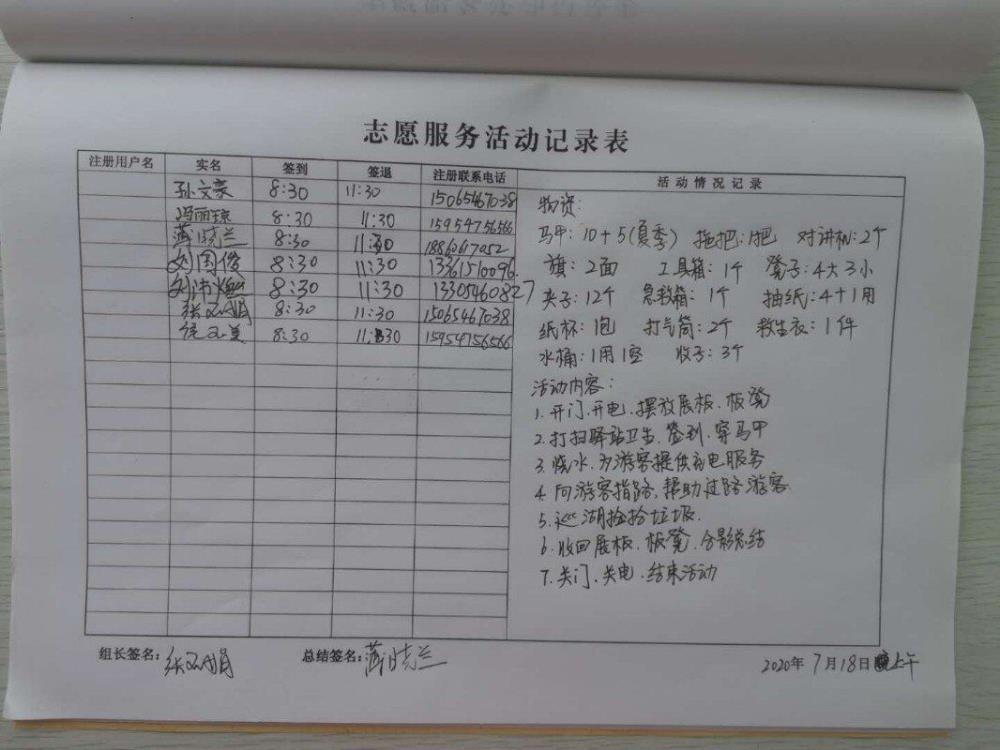 志愿服务活动记录表
注册用户名 实名 签到 签退 注册联系电话 活动情况记录
孙文豪 8:30 11:30 15065467038
冯丽琼 8:30 11:30 15954756566
蒋晓兰 8:30 11:30
刘国俊 8:30 11:30 13361510096
刘沛 8:30 11:30 13305460827
张 娟 8:30 11:30 15065467038
8:30 11:30 15954756566
物资:
马甲:10+5(夏季) 拖把:1把 对讲机:2个
旗:2面 工具箱:1个 凳子:4大3小
夹子:12个 急救箱:1个 抽纸:4+1用
纸杯:1包 打气筒:2个 救生衣:1件
水桶:1用1空 收子:3个
活动内容:
1.开门、开电、摆放展板、板凳
2.打扫驿站卫生、签到、穿马甲
3.烧水、为游客提供充电服务
4.向游客指路、帮助过路游客
5.巡湖捡拾垃圾.
6.收回展板、板凳、合影总结
7.关门、关电、结束活动
组长签名: 总结签名:蒋晓兰 2020年7月18日上午